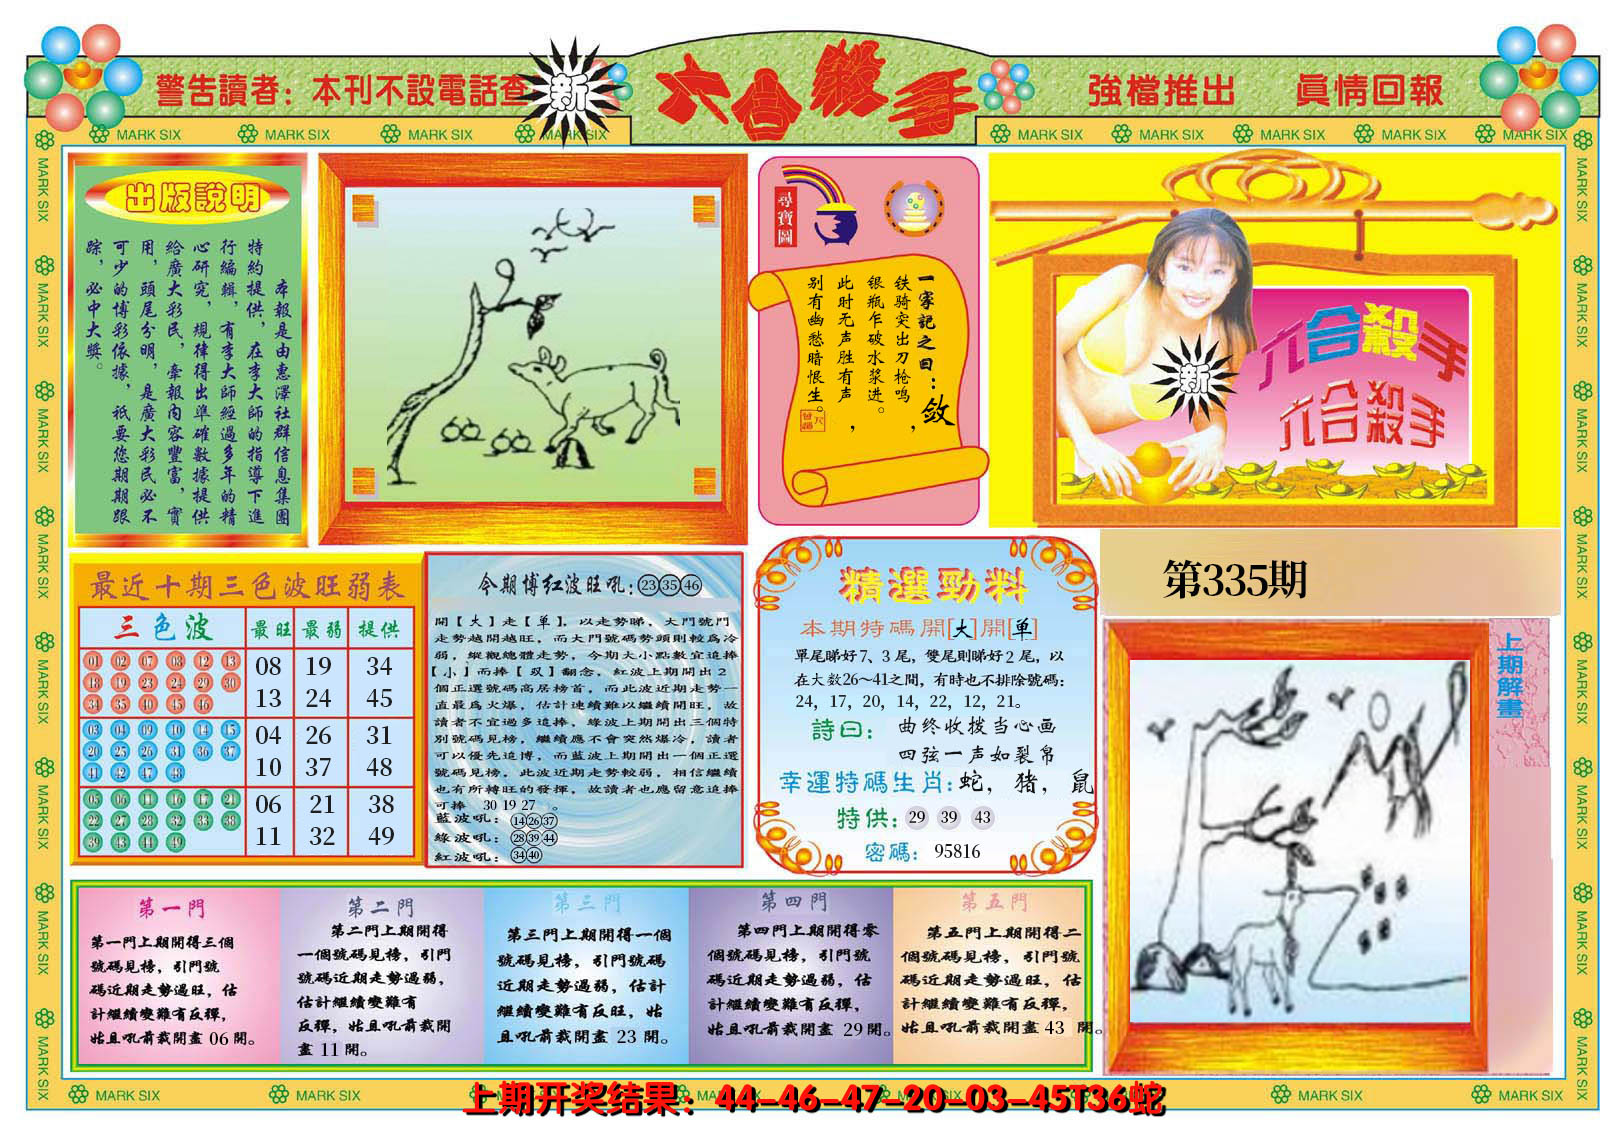 警告讀者：本刊不設電話查
新
六合殺手
強檔推出 真情回報
MARK SIX MARK SIX MARK SIX MARK SIX MARK SIX MARK SIX MARK SIX MARK SIX MARK SIX
出版說明
本報是由惠澤社群信息集團
特約提供，在李大師的指導下進
行編輯，有李大師經過多年的精
心研究，規律得出準確數據提供
給廣大彩民，牽報內容豐富，實
用，頭尾分明，是廣大彩民必不
可少的博彩依據，祇要您期期跟
踪，必中大獎。
尋寶圖
一字記之曰：敛
铁骑突出刀枪鸣，
银瓶乍破水浆进。
此时无声胜有声，
别有幽愁暗恨生。
新
六合殺手
六合殺手
第335期
上期解畫
最近十期三色波旺弱表
三色波 最旺 最弱 提供
01 02 07 08 12 13
18 19 23 24 29 30
34 35 40 45 46
08 19 34
13 24 45
03 04 09 10 14 15
20 25 26 31 36 37
41 42 47 48
04 26 31
10 37 48
05 06 11 16 17 21
22 27 28 32 33 38
39 43 44 49
06 21 38
11 32 49
今期博红波旺吼：23 35 46
開【大】走【单】，以走勢睇，大門號門
走勢越開越旺，而大門號碼勢頭則較爲冷
弱，縱觀總體走勢，今期大小點數宜追捧
【小】而捧【双】翻念，紅波上期開出2
個正選號碼高居榜首，而此波近期走勢一
直最爲火爆，估計連續難以繼續開旺，故
讀者不宜過多追捧，綠波上期開出三個特
別號碼見榜，繼續應不會突然爆冷，讀者
可以優先追博，而藍波上期開出一個正選
號碼見榜，此波近期走勢較弱，相信繼續
也有所轉旺的發揮，故讀者也應留意追捧
可捧 30 19 27 。
藍波吼：14 26 37
綠波吼：28 39 44
紅波吼：34 40
精選勁料
本期特碼開[大]開[单]
單尾睇好7、3尾，雙尾則睇好2尾，以
在大数26～41之間，有時也不排除號碼：
24，17，20，14，22，12，21。
詩曰：曲终收拨当心画
四弦一声如裂帛
幸運特碼生肖：蛇，猪，鼠
特供：29 39 43
密碼：95816
第一門
第一門上期開得三個
號碼見榜，引門號
碼近期走勢過旺，估
計繼續變難有反彈，
姑且吼前裁開盡 06 開。
第二門
第二門上期開得
一個號碼見榜，引門
號碼近期走勢過弱，
估計繼續變難有
反彈，姑且吼前裁開
盡 11 開。
第三門
第三門上期開得一個
號碼見榜，引門號碼
近期走勢過弱，估計
繼續變難有反旺，姑
且吼前裁開盡 23 開。
第四門
第四門上期開得零
個號碼見榜，引門號
碼近期走勢過弱，估
計繼續變難有反彈，
姑且吼前裁開盡 29 開。
第五門
第五門上期開得二
個號碼見榜，引門號
碼近期走勢過旺，估
計繼續變難有反彈，
姑且吼前裁開盡 43 開。
MARK SIX MARK SIX MARK SIX MARK SIX
上期开奖结果：44-46-47-20-03-45T36蛇